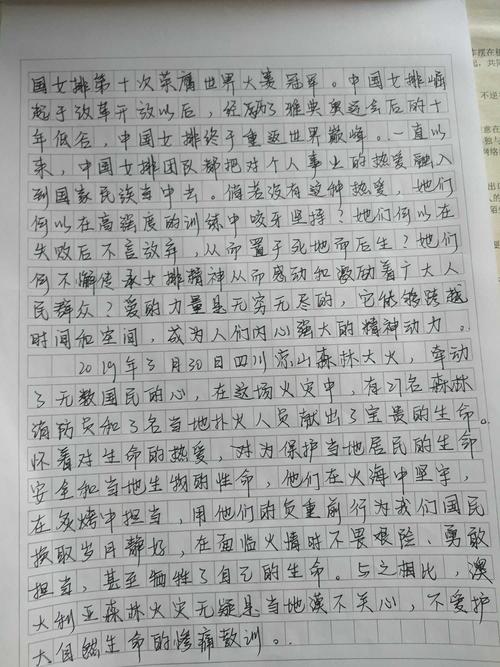 国女排第十次荣膺世界大赛冠军。中国女排崛
起于改革开放以后，经历了雅典奥运会后的十
年低谷，中国女排终于重返世界巅峰。一直以
来，中国女排团队都把对个人事业的热爱融入
到国家民族当中去。倘若没有这种热爱，她们
何以在高强度的训练中咬牙坚持？她们何以在
失败后不言放弃，从而置于死地而后生？她们
何不解传承女排精神从而感动和激励着广大人
民群众？爱的力量是无穷无尽的，它能够跨越
时间和空间，成为人们内心强大的精神动力。
2019年3月30日四川凉山森林大火，牵动
了无数国民的心，在这场火灾中，有27名森林
消防员和3名当地扑火人员献出了宝贵的生命。
怀着对生命的热爱，对为保护当地居民的生命
安全和当地生物的性命，他们在火海中坚守，
在炙烤中担当，用他们的负重前行为我们国民
换取岁月静好，在面临火情时不畏艰险、勇敢
担当，甚至牺牲了自己的生命。与之相比，澳
大利亚森林火灾无疑是当地漠不关心，不爱护
大自然生命的惨痛教训。